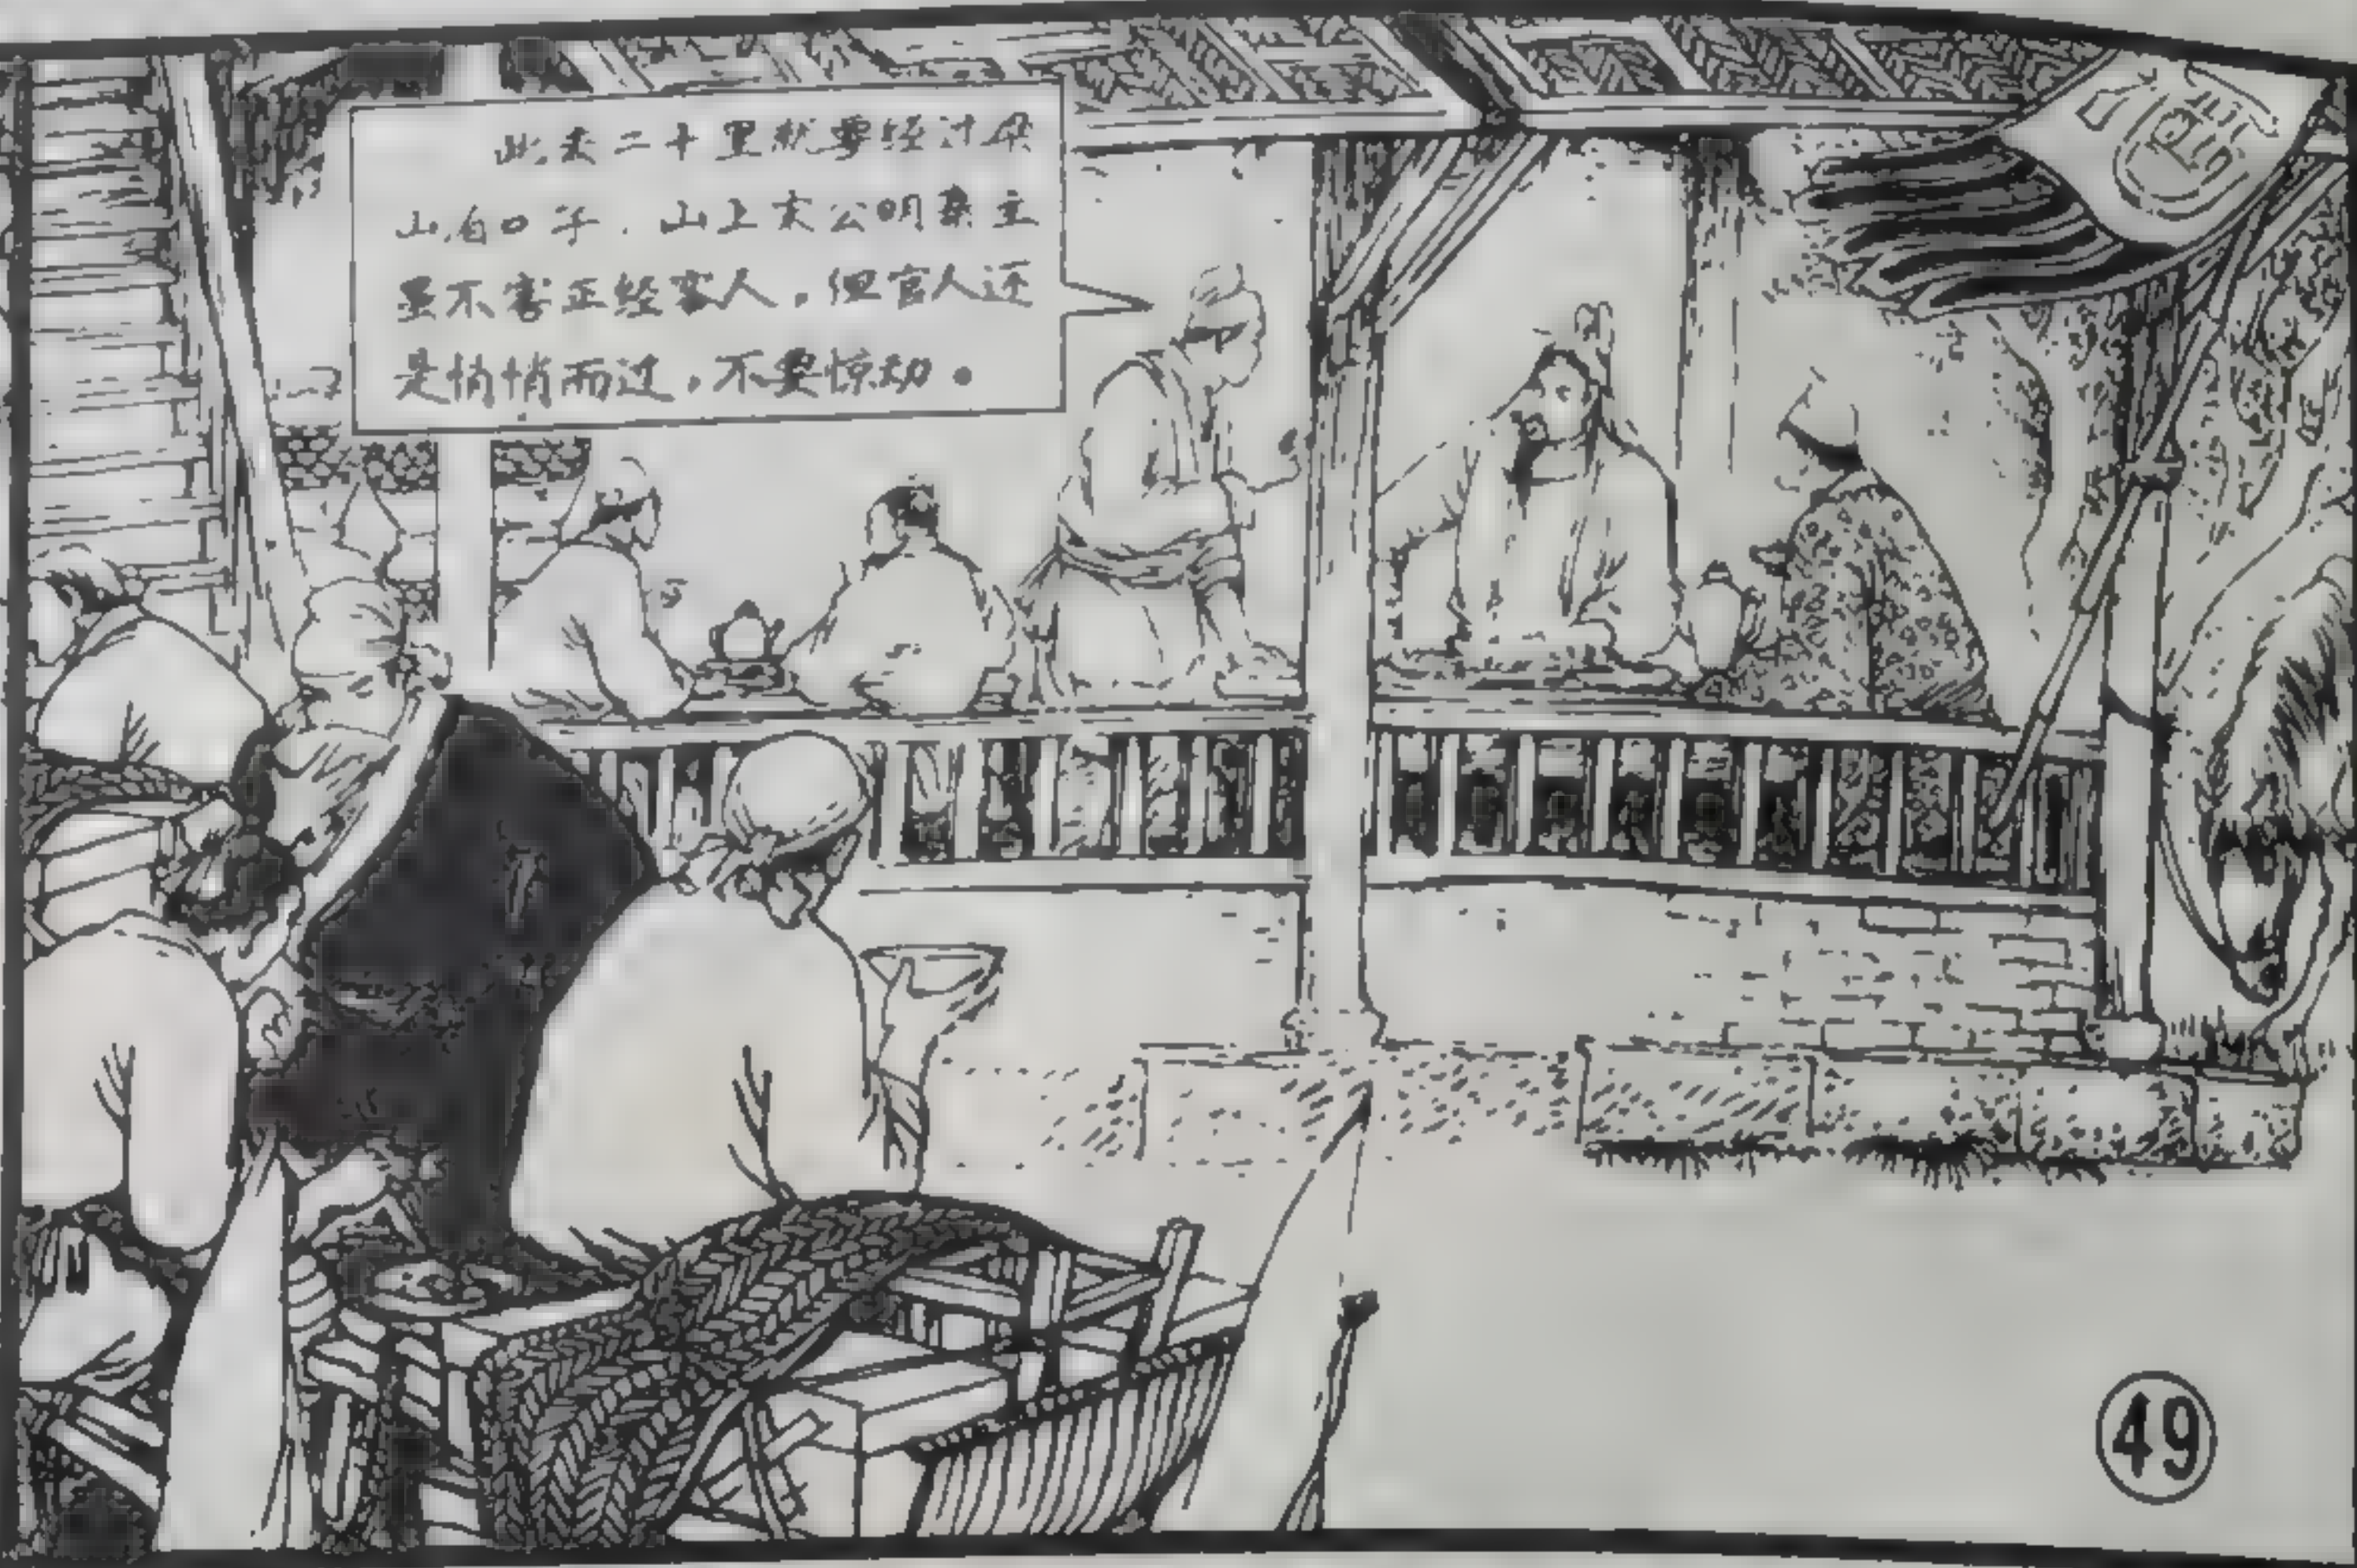 此去二十里就要经过梁
山泊口子，山上宋公明寨主
虽不害正经客人，但官人还
是悄悄而过，不要惊动。
酒
49